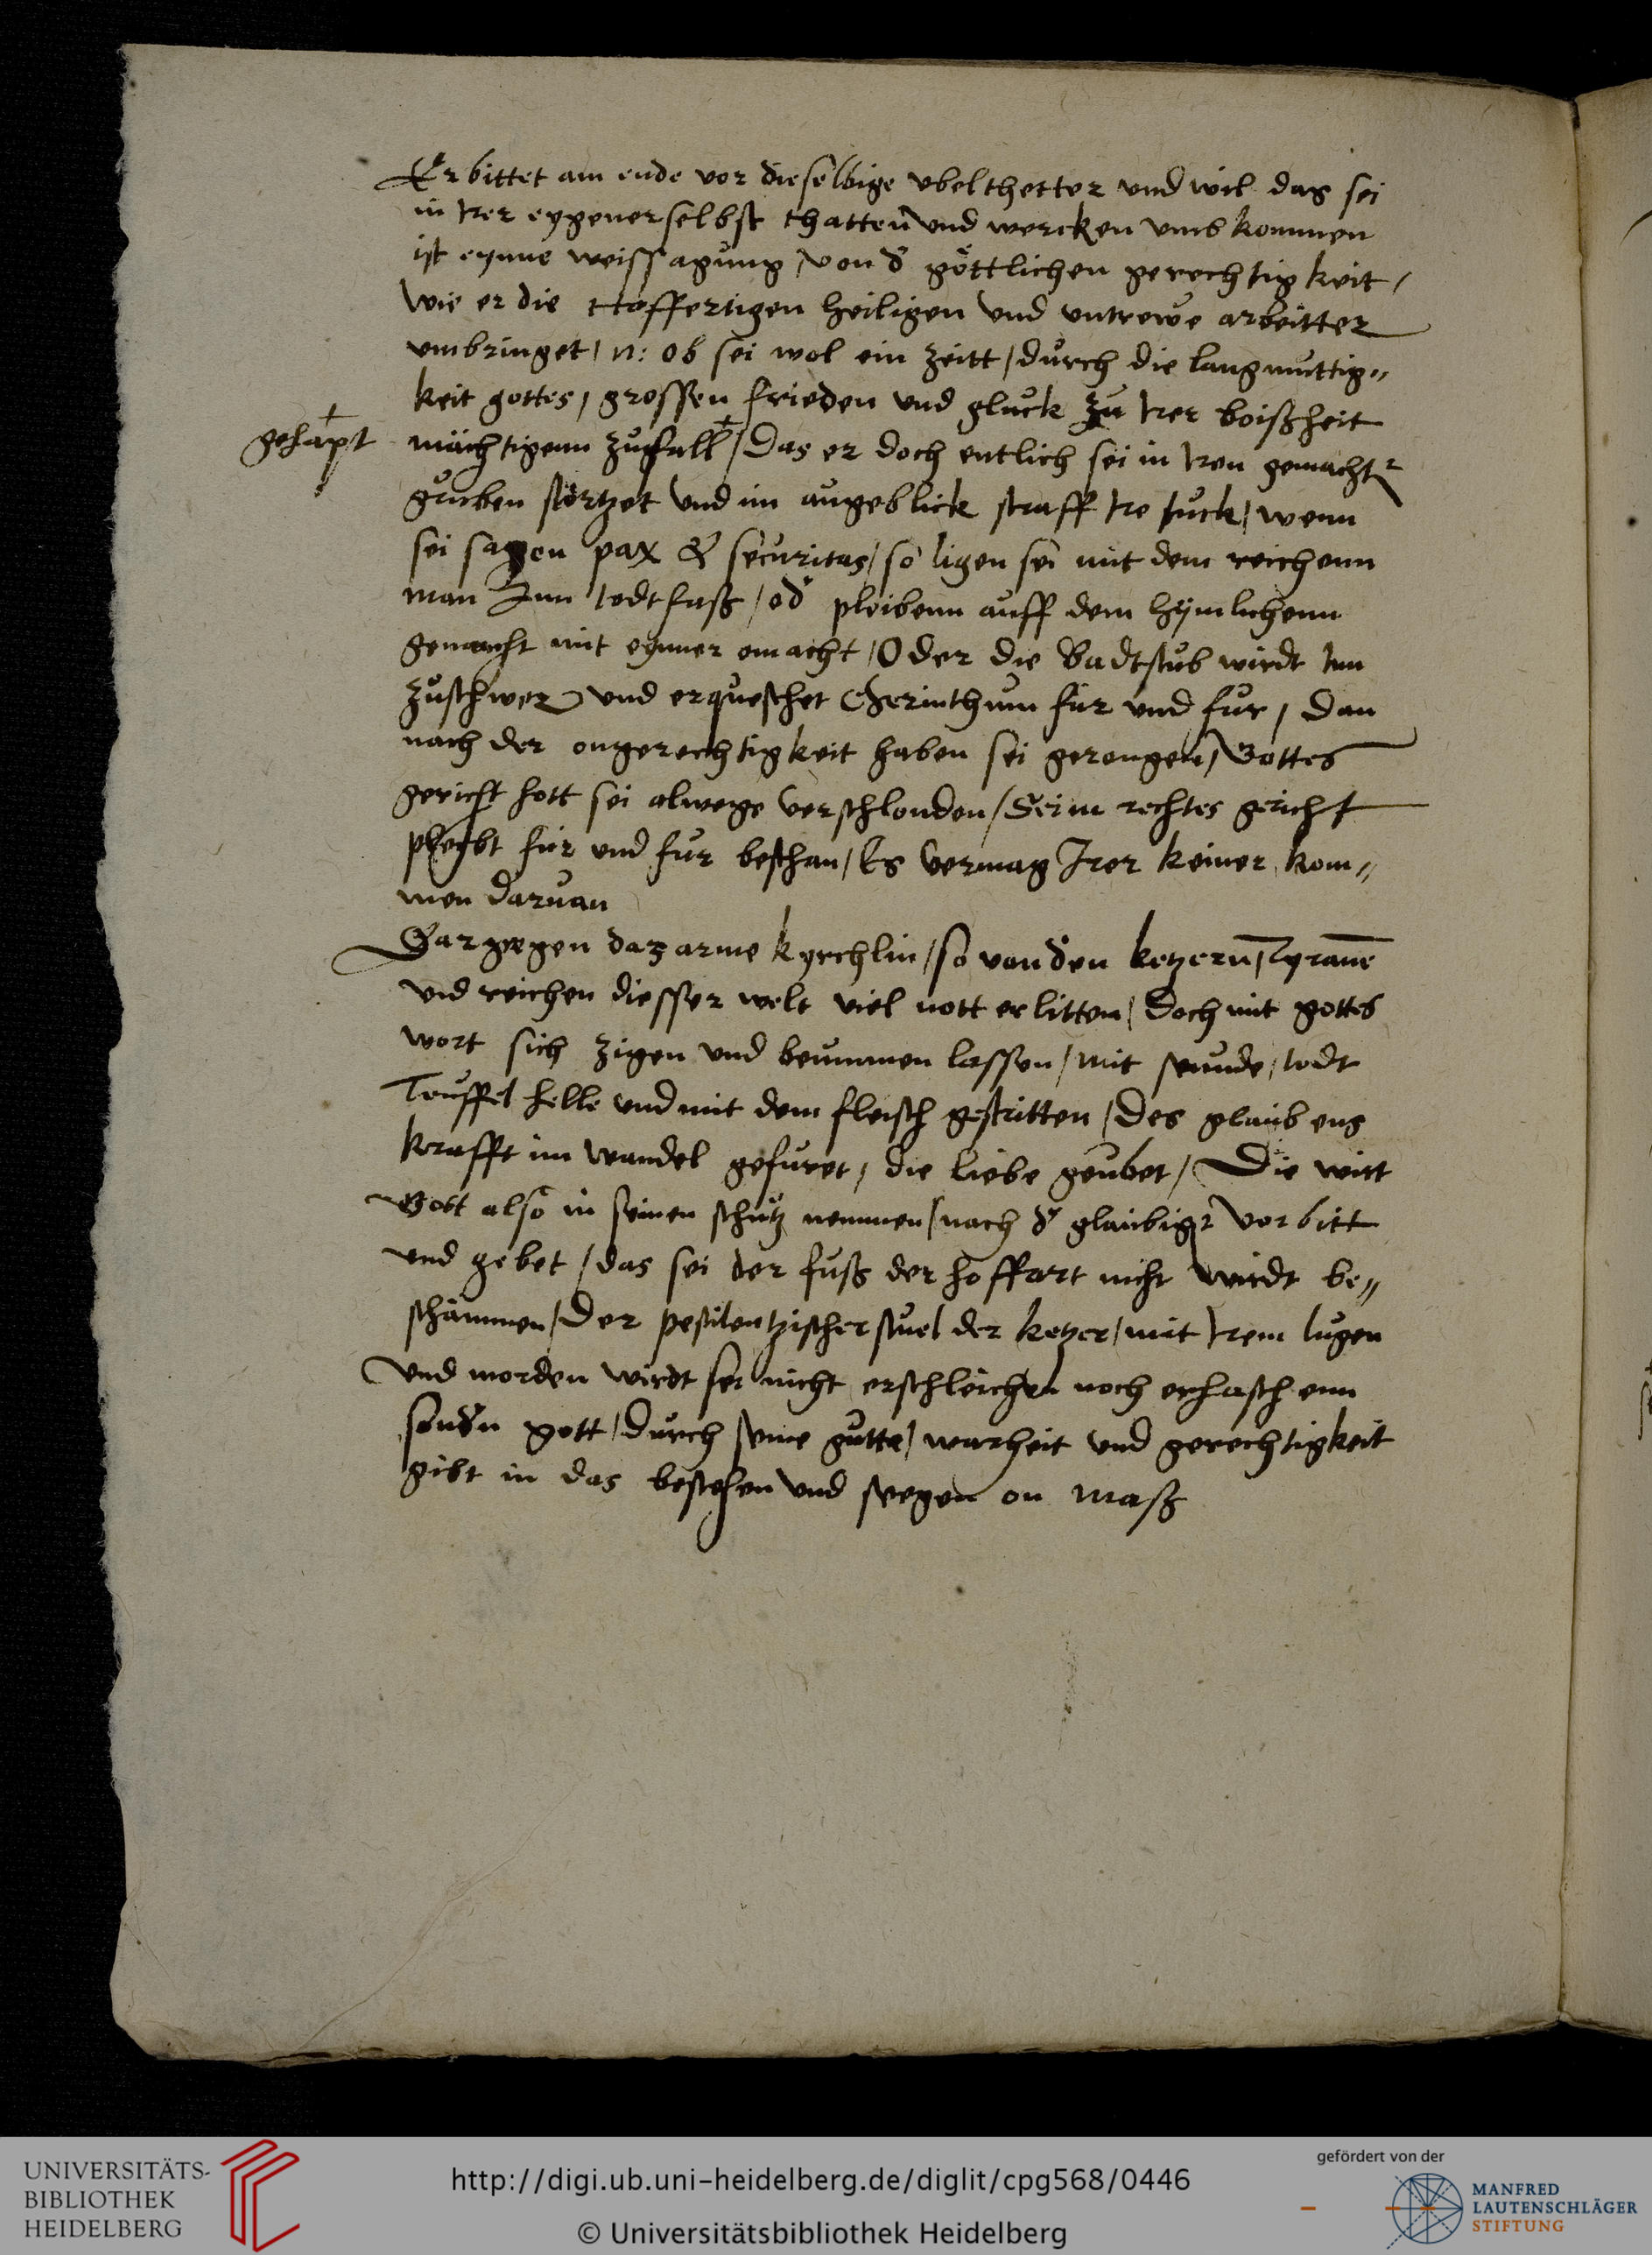 Er bittet am ende vor dieselbige vbelthetter vnd wil das sei
in irer eygener selbst thatten vnd wercken vmb kommen
ist eynne weissagung / von d göttlichen gerechtigkeit /
wie er die Hoffertigen heiligen vnd vntrewe arbeitter
vmbringet / n: ob sei wol ein zeitt / durch die langmuttig„
keit gottes / grossen frieden vnd gluck zu irer boißheit
gehapt
mächtigenn zufall / das er doch entlich sei in iren gemacht
gruben störtzet vnd im augeblick straff ire tuck / wenn
sei sagen pax & securitas / so ligen sei mit dem reichenn
man Inn todtsaß / od pleibenn auff dem hÿmlichenn
gemacht mit eynner omacht / Oder die Badtstub wirdt inn
zuschwer vnd erqueschet Cherinthum für vnd für / dan
nach der ongerechtigkeit haben sei gerongen / Gottes
gericht hott sei alwege verschlonden / Sein rechtes gericht
pleybt für vnd fur besthan / Es vermag Irer keiner kom„
men daruan
Dargegen daz arme kyrchlin / so von den ketzern / Tyrane
vnd reichen diesser welt viel nott erlitten / doch mit gottes
wort sich zigen vnd beummen lassen / mit sunde / todt
Teuffel helle vnd mit dem fleisch gestritten / des glaubens
krafft im wandel gefuret / die liebe geubet / Die wirt
Gott also in seinen schutz nemmen / nach d glaubig vorbitt
vnd gebet / das sei der fuß der hoffart nicht wirdt be„
schämmen / Der pestilentzischer stuel der ketzer / mit irem lugen
vnd morden wirdt sei nicht erschleichen noch erhaschenn
sondn gott / durch seine gutte / warheit vnd gerechtigkeit
gibt in das bestehen vnd segen on maß
UNIVERSITÄTS-
BIBLIOTHEK
HEIDELBERG
http://digi.ub.uni-heidelberg.de/diglit/cpg568/0446
© Universitätsbibliothek Heidelberg
gefördert von der
MANFRED
LAUTENSCHLÄGER
STIFTUNG